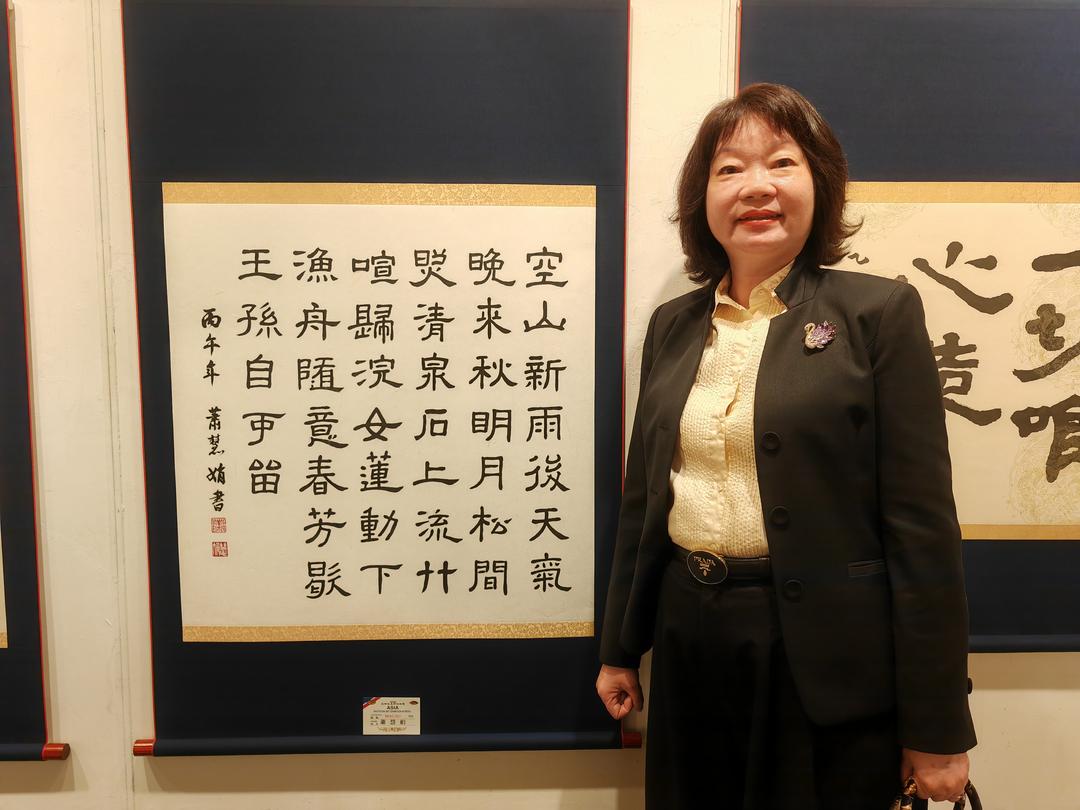 空山新雨後天氣
晚來秋明月松間
照清泉石上流竹
喧歸浣女蓮動下
漁舟隨意春芳歇
王孫自可留
丙午年 蕭慧娟書
一切唯
心造
ASIA
蕭慧娟
PRADA